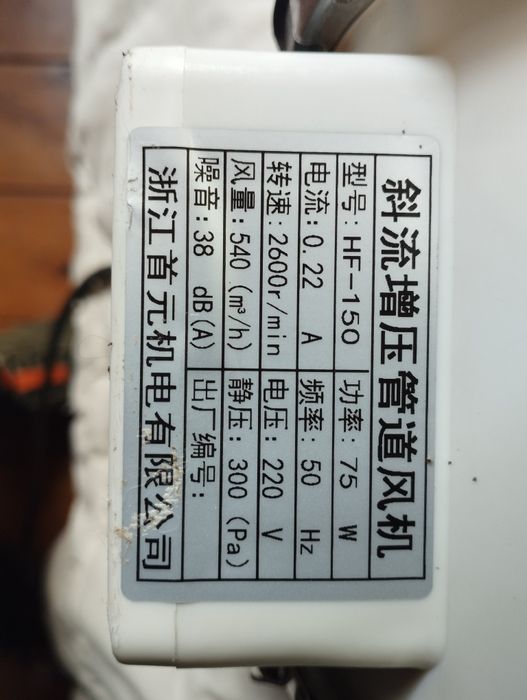 斜流增压管道风机
型号: HF-150 功率: 75 W
电流: 0.22 A 频率: 50 Hz
转速: 2600r/min 电压: 220 V
风量: 540 (m³/h) 静压: 300 (Pa)
噪音: 38 dB(A) 出厂编号:
浙江首元机电有限公司